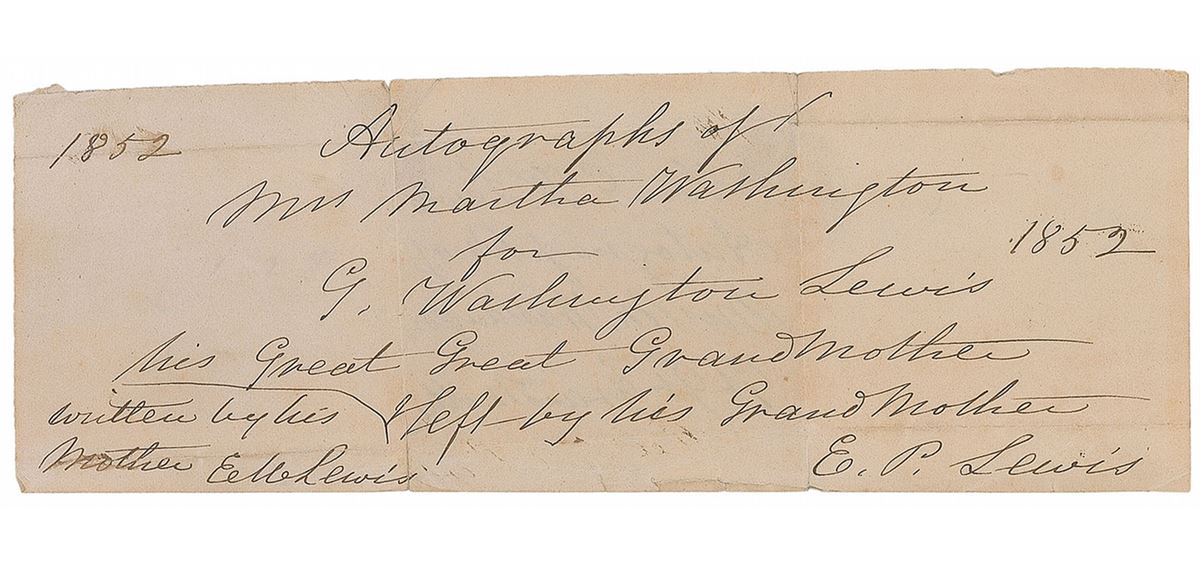 1852 Autographs of
Mrs Martha Washington
for 1852
G. Washington Lewis
his Great Great GrandMother
written by his & left by his GrandMother
Mother E M Lewis E. P. Lewis